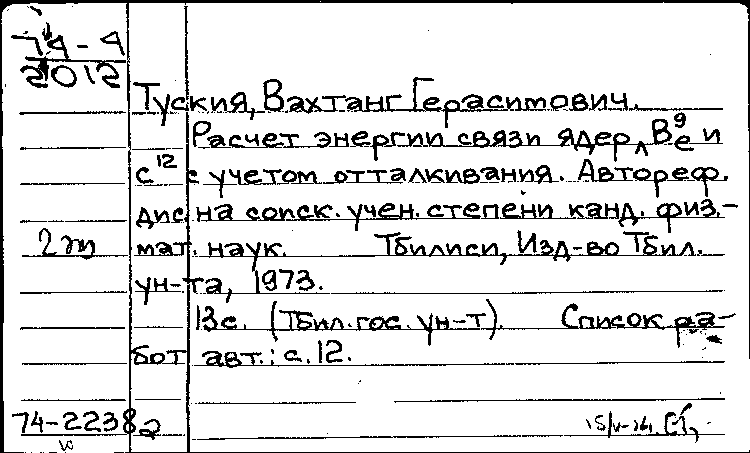 74-4
2012
Туския, Вахтанг Герасимович.
Расчет энергии связи ядер Be⁹ и
C¹² с учетом отталкивания. Автореф.
дис. на соиск. учен. степени канд. физ.-
2 эт
мат. наук. Тбилиси, Изд-во Тбил.
ун-та, 1973.
13 с. (Тбил. гос. ун-т). Список ра-
бот авт.: с. 12.
74-22382